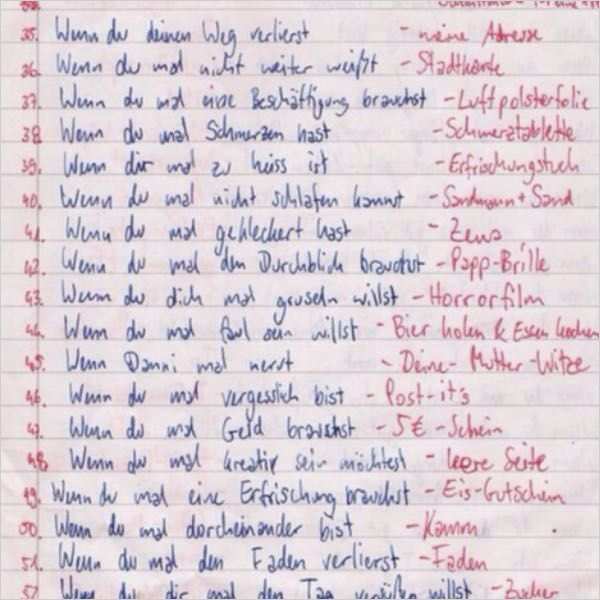 35. Wenn du deinen Weg verlierst - meine Adresse
36. Wenn du mal nicht weiter weißt - Stadtkarte
37. Wenn du mal eine Beschäftigung brauchst - Luftpolsterfolie
38. Wenn du mal Schmerzen hast - Schmerztablette
39. Wenn dir mal zu heiss ist - Erfrischungstuch
40. Wenn du mal nicht schlafen kannst - Sandmann + Sand
41. Wenn du mal gekleckert hast - Zewa
42. Wenn du mal den Durchblick brauchst - Papp-Brille
43. Wenn du dich mal gruseln willst - Horrorfilm
44. Wenn du mal faul sein willst - Bier holen & Essen kochen
45. Wenn Danni mal nervt - Deine-Mutter-Witze
46. Wenn du mal vergesslich bist - Post-it's
47. Wenn du mal Geld brauchst - 5€-Schein
48. Wenn du mal kreativ sein möchtest - leere Seite
49. Wenn du mal eine Erfrischung brauchst - Eis-Gutschein
50. Wenn du mal dorcheinander bist - Kamm
51. Wenn du mal den Faden verlierst - Faden
52. Wenn du dir mal den Tag versüßen willst - Zucker